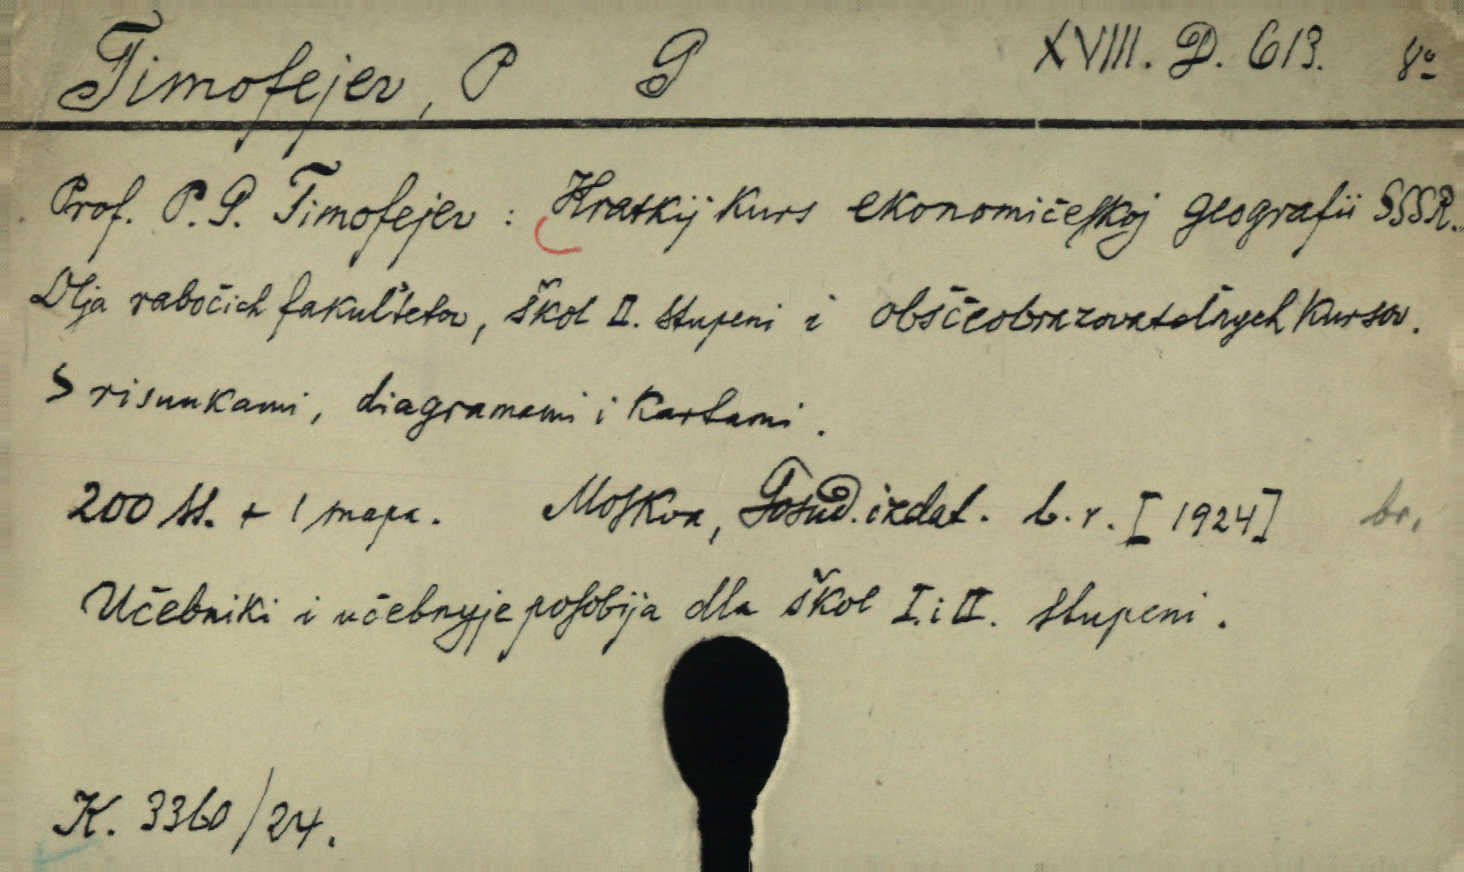 Timofejev, P G XVIII. D. 613. 8º
Prof. P. G. Timofejev : Kratkij kurs ekonomičeskoj geografii SSSR.
Dlja rabočich fakul'tetov, škol II. stupeni i obščeobrazovatel'nych kursov.
S risunkami, diagramami i kartami.
200 ss. + 1 mapa. Moskva, Gosud. izdat. b. r. [1924] br.
Učebniki i učebnyje posobija dla škol I. i II. stupeni.
K. 3360/24.